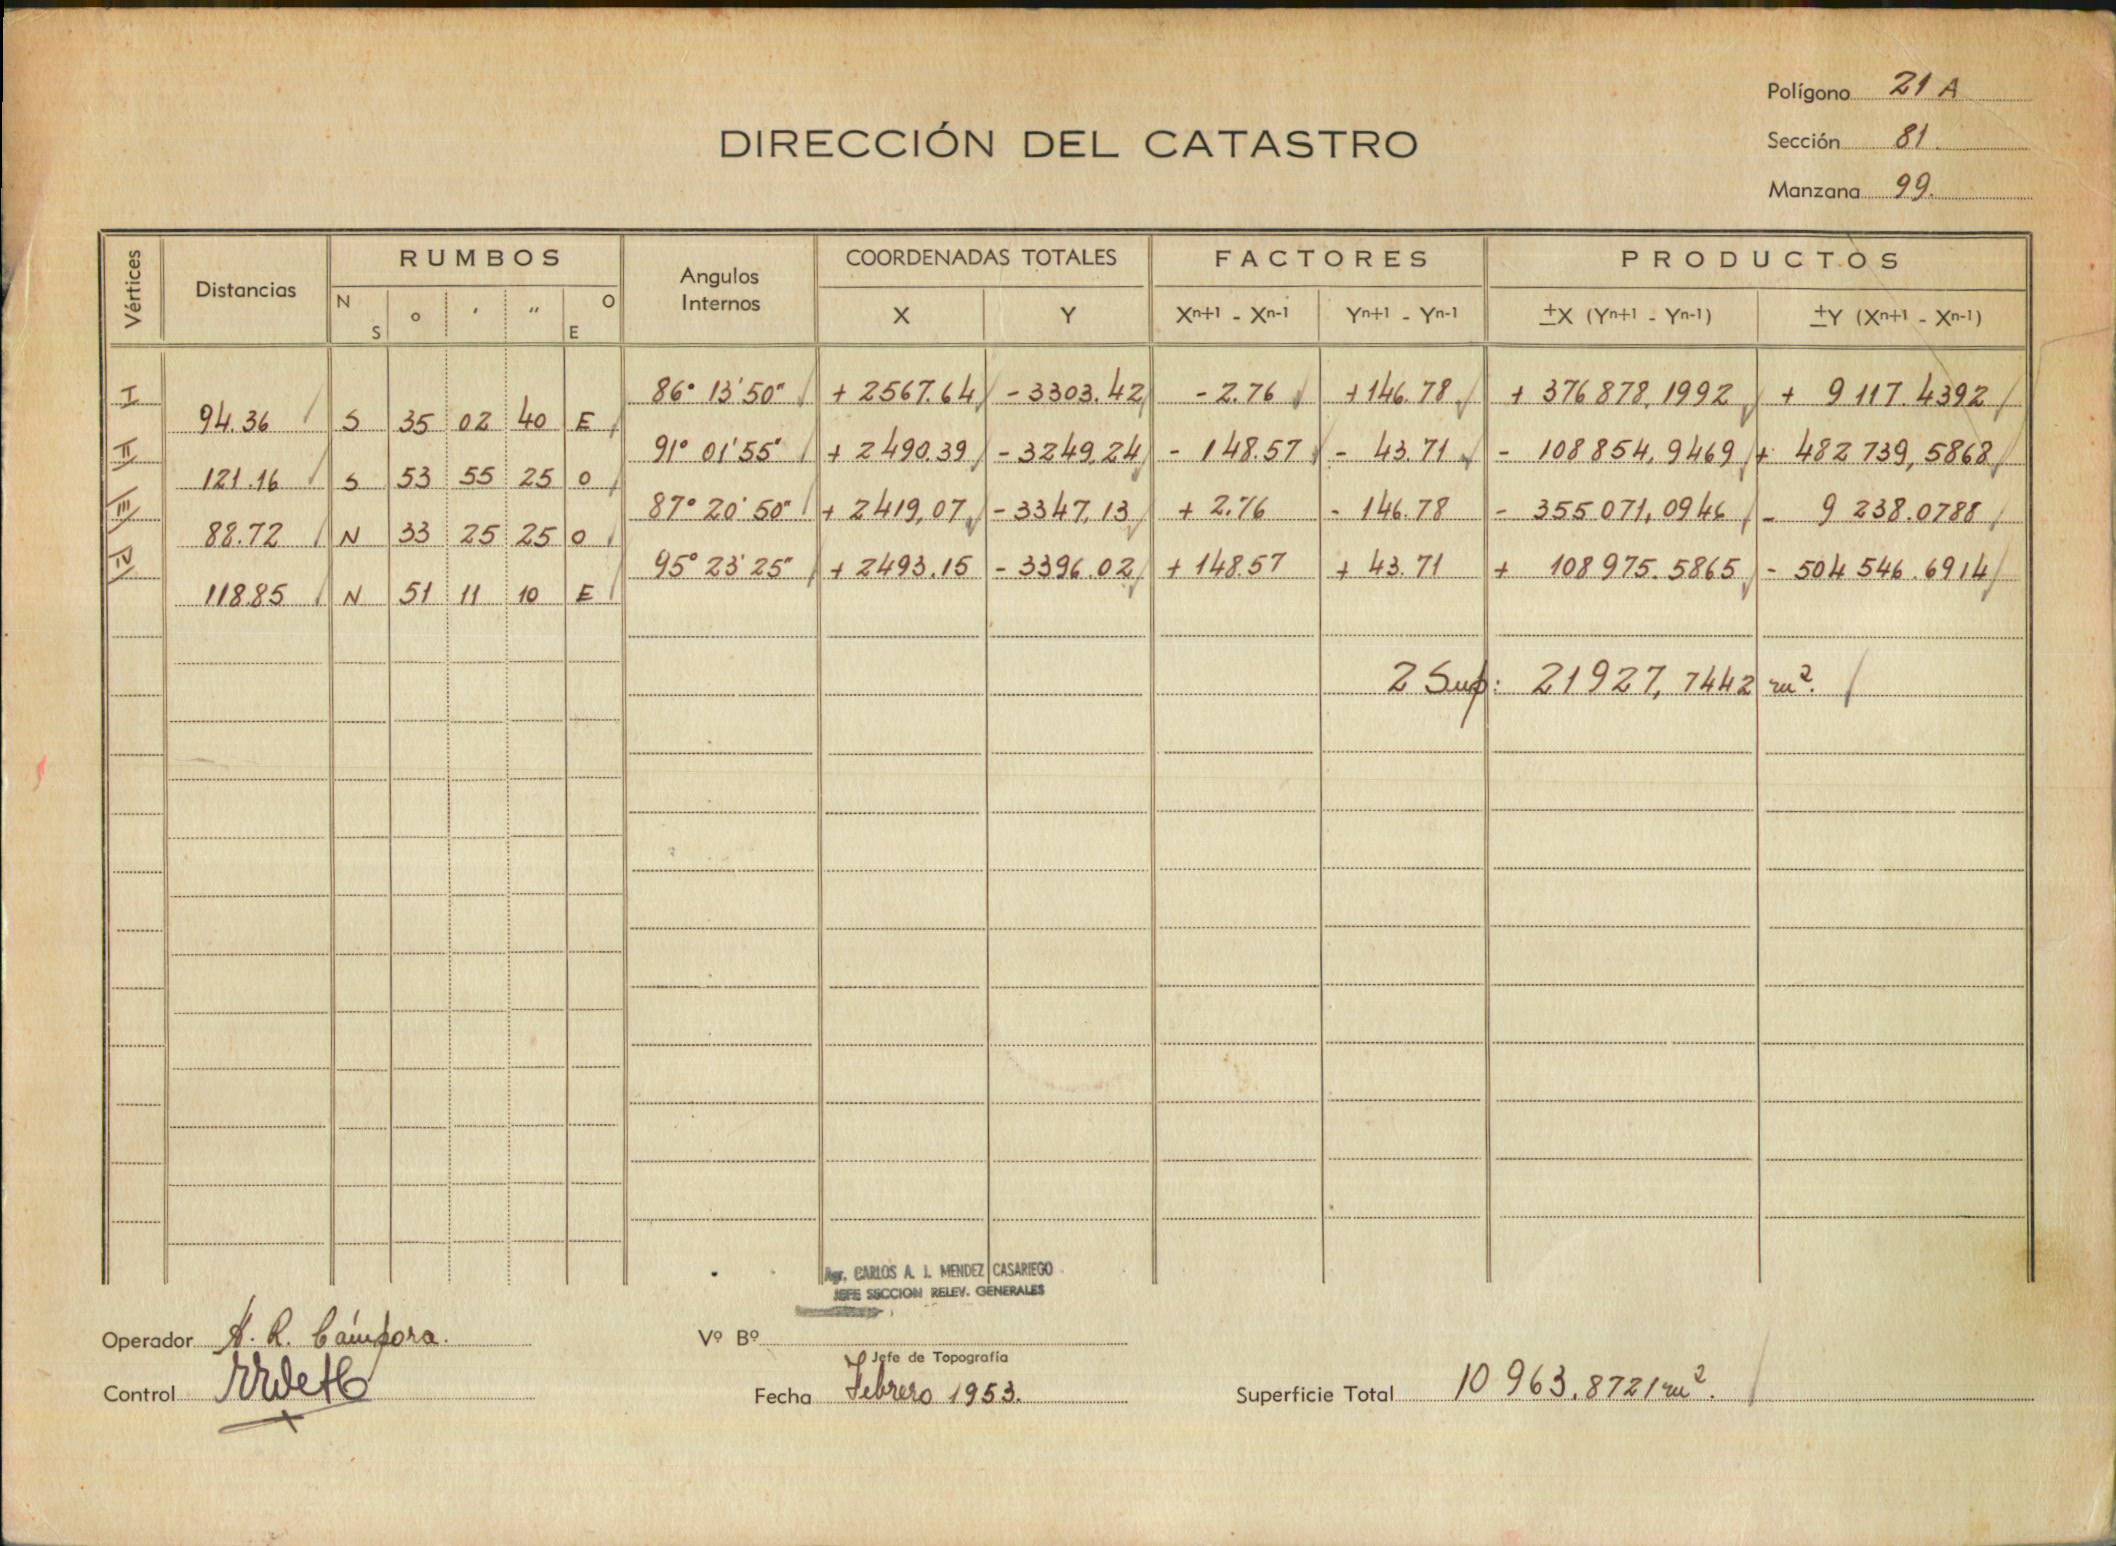 Polígono 21 A
DIRECCIÓN DEL CATASTRO
Sección 81.
Manzana 99.
Vértices Distancias RUMBOS Angulos Internos COORDENADAS TOTALES FACTORES PRODUCTOS
N S o ' " O E X Y Xn+1 - Xn-1 Yn+1 - Yn-1 ±X (Yn+1 - Yn-1) ±Y (Xn+1 - Xn-1)
I 86° 13' 50" + 2567.64 - 3303.42 - 2.76 + 146.78 + 376 878,1992 + 9 117.4392
94.36 S 35 02 40 E
II 91° 01' 55" + 2490.39 - 3249.24 - 148.57 - 43.71 - 108 854,9469 + 482 739,5868
121.16 S 53 55 25 O
III 87° 20' 50" + 2419,07 - 3347,13 + 2.76 - 146.78 - 355 071,0946 - 9 238.0788
88.72 N 33 25 25 O
IV 95° 23' 25" + 2493.15 - 3396.02 + 148.57 + 43.71 + 108 975.5865 - 504 546.6914
118.85 N 51 11 10 E
2 Sup: 21927,7442 m².
Agr. CARLOS A. J. MENDEZ CASARIEGO
JEFE SECCION RELEV. GENERALES
Operador A. R. Cámpora.
Vº Bº
Jefe de Topografía
Control
Fecha Febrero 1953.
Superficie Total 10 963.8721 m².